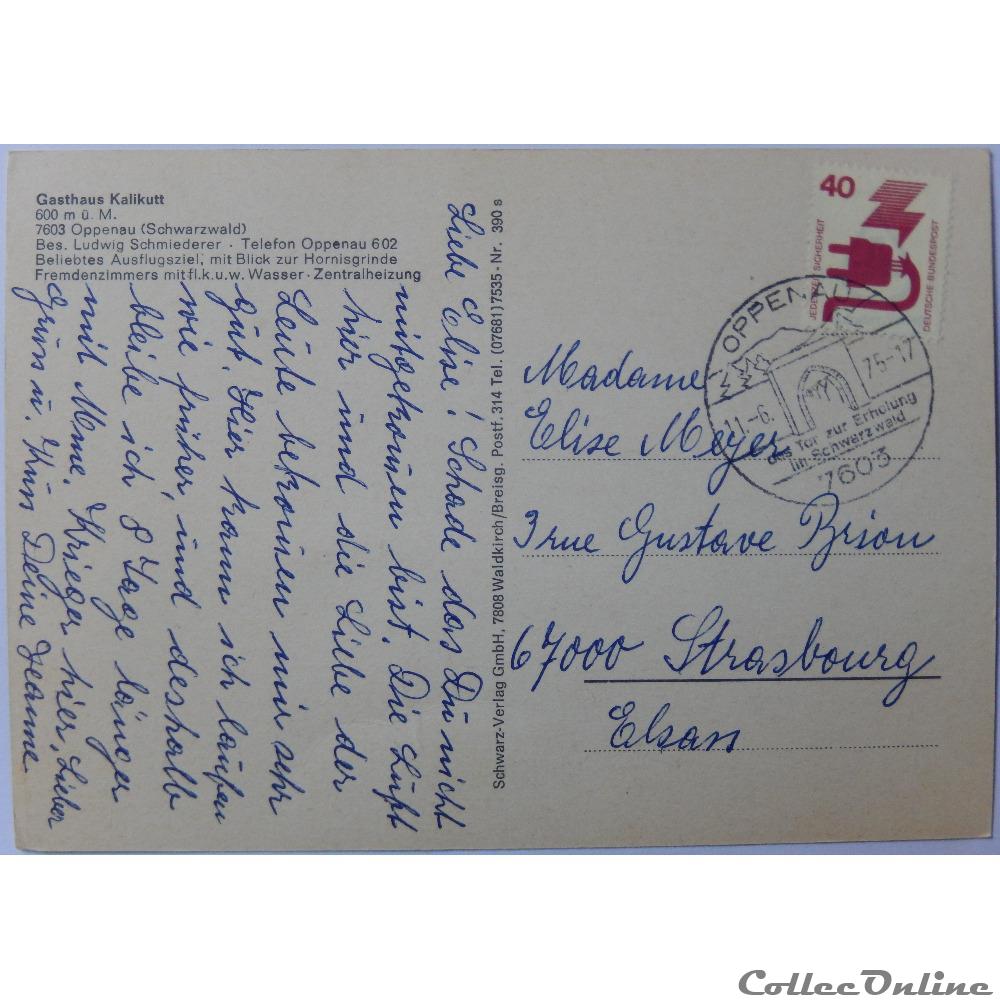 Gasthaus Kalikutt
600 m ü. M.
7603 Oppenau (Schwarzwald)
Bes. Ludwig Schmiederer · Telefon Oppenau 602
Beliebtes Ausflugsziel, mit Blick zur Hornisgrinde
Fremdenzimmers mit fl. k. u. w. Wasser · Zentralheizung
Liebe Elise! Schade das Du nicht
mitgekomen bist. Die Luft
hir und die Liebe der
Leute bekomen mir sehr
gut. Hier kann ich laufen
wie früher, und deshalb
bleibe ich 8 Tage länger
mit Mme. Krieger hier. Lieber
Gruss u. Küss Deine Jeanne
Schwarz-Verlag GmbH, 7808 Waldkirch/Breisg. Postf. 314 Tel. (07681) 7535 - Nr. 390 s
40
JEDERZEIT SICHERHEIT
DEUTSCHE BUNDESPOST
OPPENAU
11.-6. 75-17
das Tor zur Erholung
im Schwarzwald
7603
Madame
Elise Meyer
3 rue Gustave Brion
67000 Strasbourg
Elsass
CollecOnline